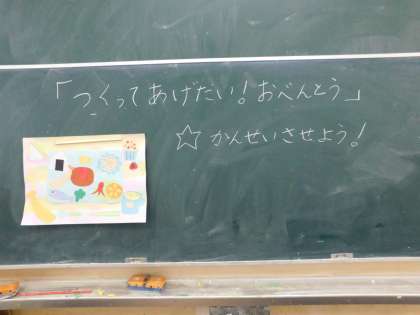 「つくってあげたい!おべんとう」
☆かんせいさせよう!